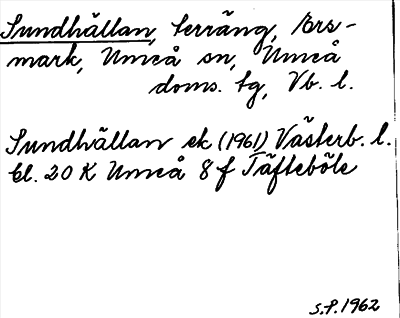 Sundhällan, terräng, Tors-
mark, Umeå sn, Umeå
doms. tg, Vb. l.
Sundhällan ek (1961) Västerb. l.
bl. 20 K Umeå 8 f Täfteböle
S.P. 1962